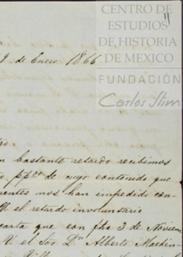 CENTRO DE
ESTUDIOS
DE HISTORIA
DE MEXICO
FUNDACIÓN
Carlos Slim
11
de Enero 1866
bastante retardo recibimos
de cuyo contenido que
nos han impedido con
el retardo involuntario
carta que con fha 3 de Noviem
el Sor Dn Alberto